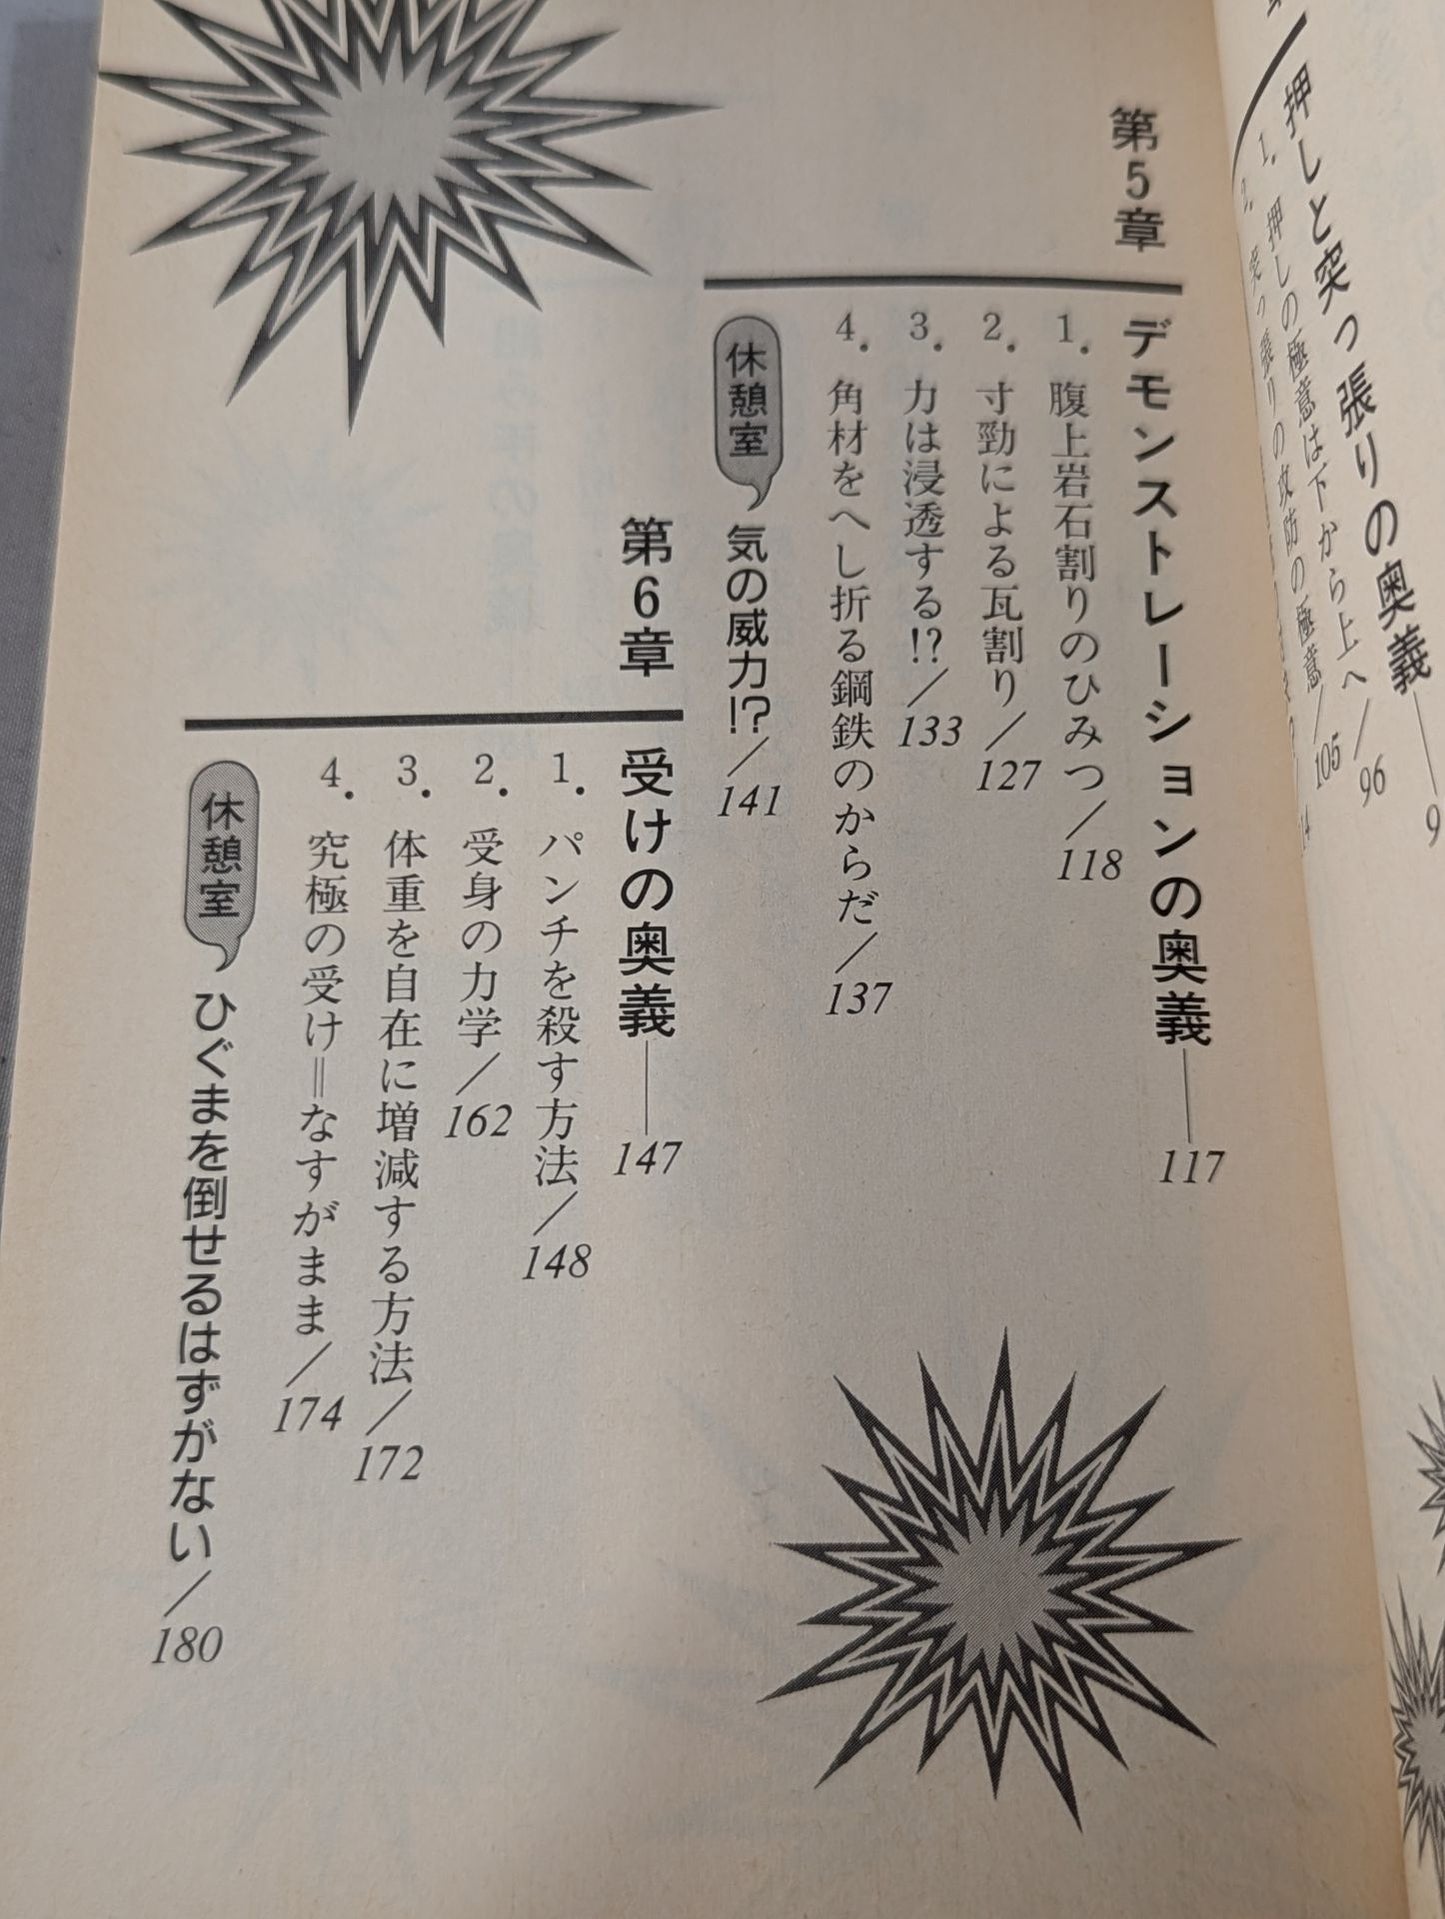 押しと突っ張りの奥義
1. 押しの極意は下から上へ／96
2. 突っ張りの攻防の極意／105
第5章
デモンストレーションの奥義──117
1. 腹上岩石割りのひみつ／118
2. 寸勁による瓦割り／127
3. 力は浸透する!?／133
4. 角材をへし折る鋼鉄のからだ／137
休憩室 気の威力!?／141
第6章
受けの奥義──147
1. パンチを殺す方法／148
2. 受身の力学／162
3. 体重を自在に増減する方法／172
4. 究極の受け＝なすがまま／174
休憩室 ひぐまを倒せるはずがない／180